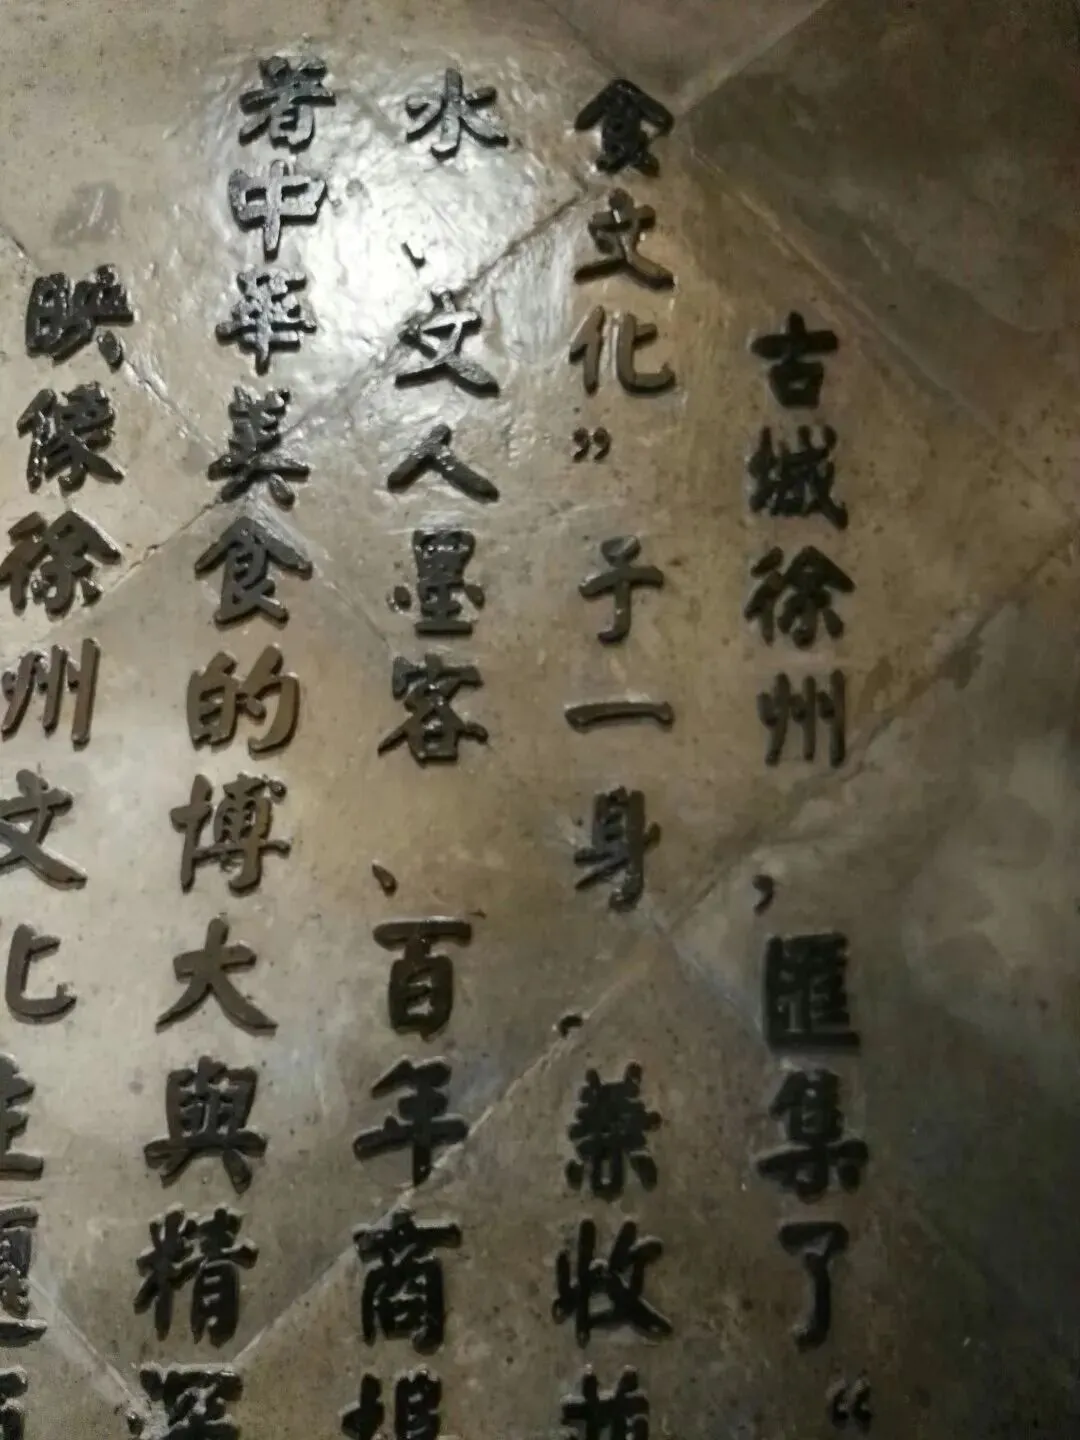 古城徐州，匯集了“
食文化”于一身，兼收並
水、文人墨客、百年商埠
著中華美食的博大與精深
映像徐州文化主題